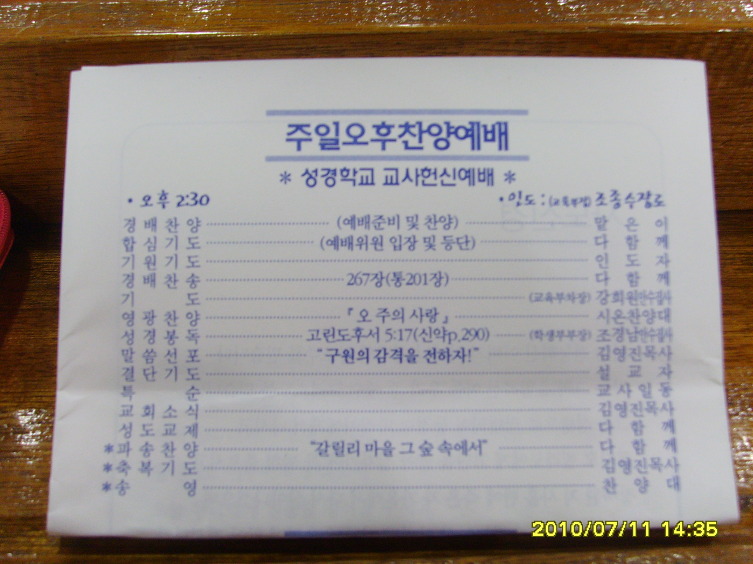 주일오후찬양예배
* 성경학교 교사헌신예배 *
• 오후 2:30 • 인도 : (교육부장) 조종수장로
경배찬양 (예배준비 및 찬양) 맡은이
합심기도 (예배위원 입장 및 등단) 다함께
기원기도 인도자
경배찬송 267장(통201장) 다함께
기도 (교육부차장) 강희원안수집사
영광찬양 『오 주의 사랑』 시온찬양대
성경봉독 고린도후서 5:17(신약p.290) (학생부부장) 조경남안수집사
말씀선포 "구원의 감격을 전하자!" 김영진목사
결단기도 설교자
특순 교사일동
교회소식 김영진목사
성도교제 다함께
*파송찬양 "갈릴리 마을 그 숲 속에서" 다함께
*축복기도 김영진목사
*송영 찬양대
2010/07/11 14:35